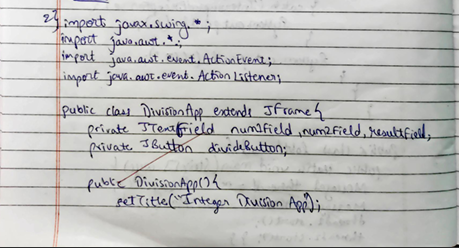 2) import javax.swing.*;
import java.awt.*;
import java.awt.event.ActionEvent;
import java.awt.event.ActionListener;
public class DivisionApp extends JFrame{
private JTextField num1Field, num2Field, resultField;
private JButton divideButton;
public DivisionApp(){
setTitle("Integer Division App");